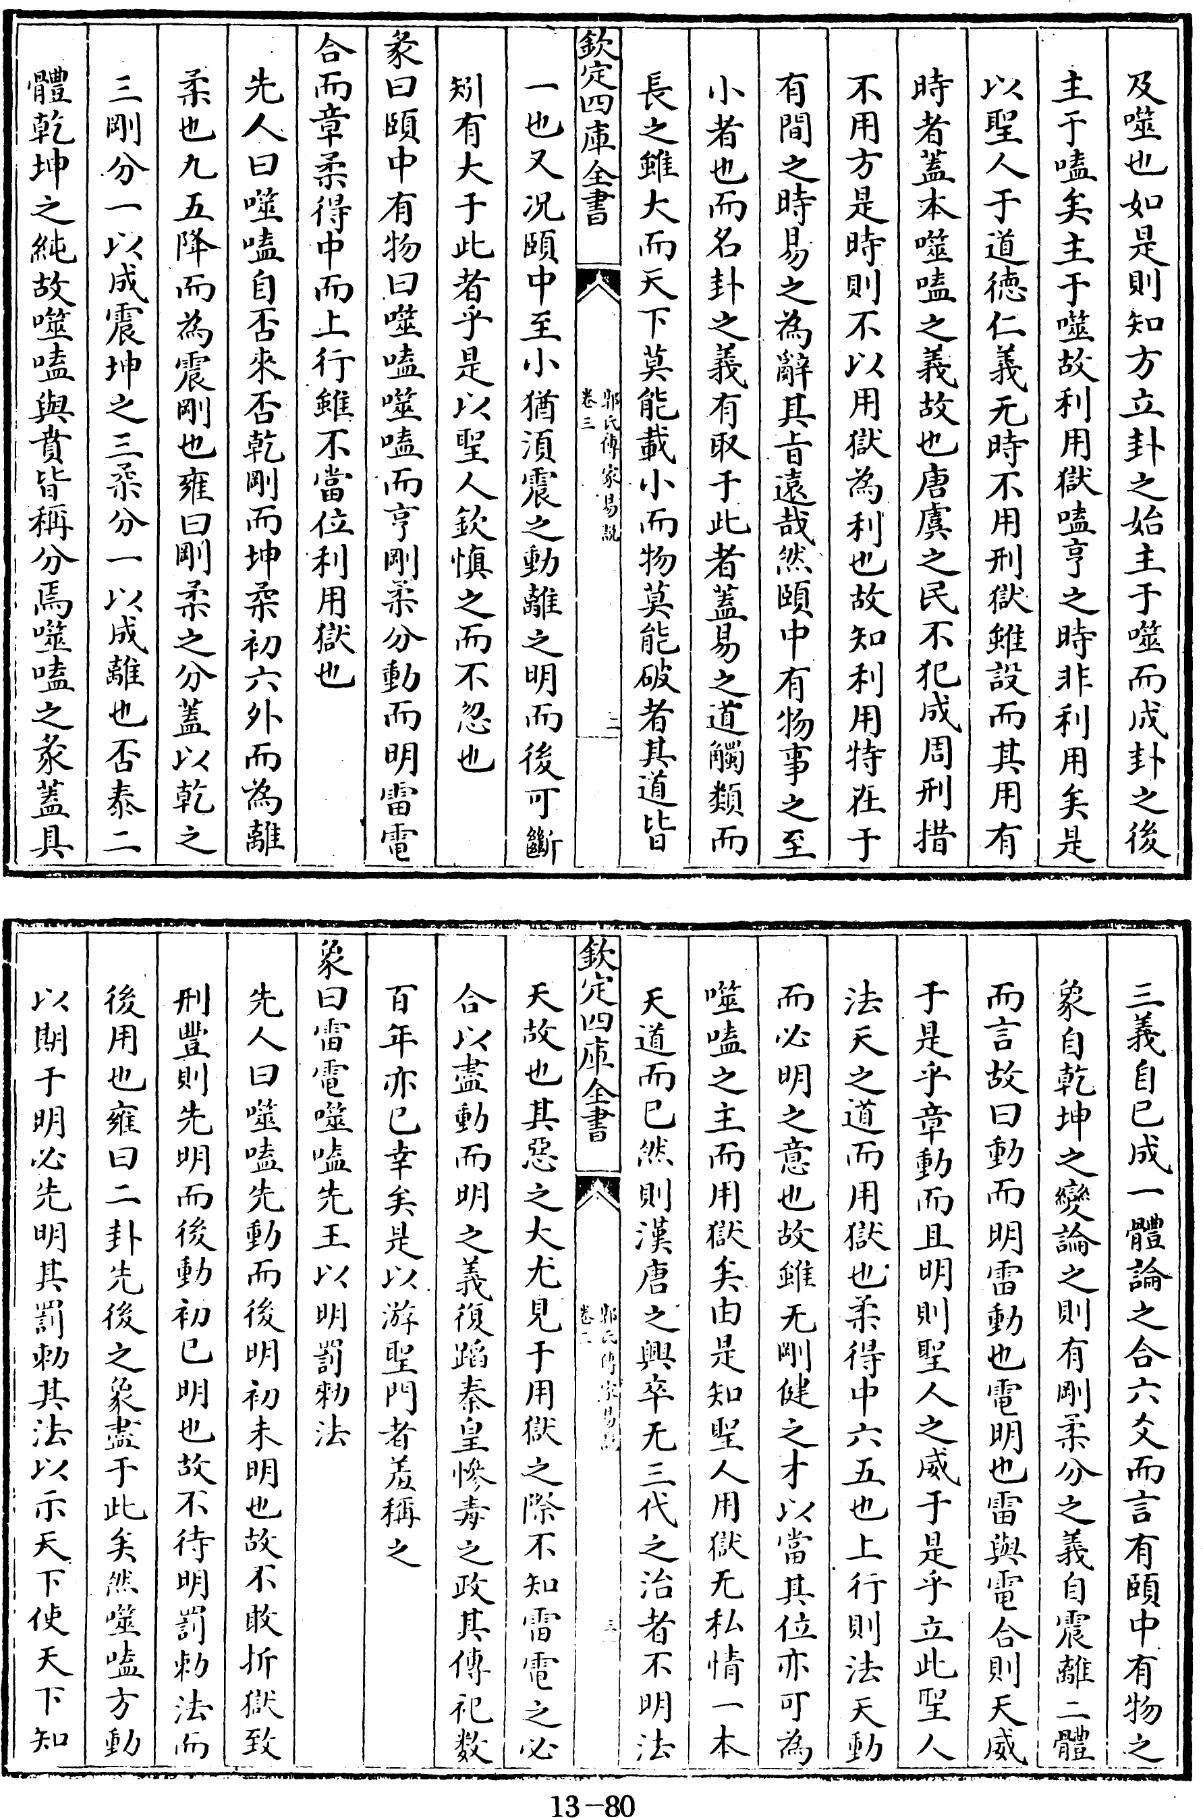 及噬也如是則知方立卦之始主于噬而成卦之後
主于嗑矣主于噬故利用獄嗑亨之時非利用矣是
以聖人于道德仁義无時不用刑獄雖設而其用有
時者蓋本噬嗑之義故也唐虞之民不犯成周刑措
不用方是時則不以用獄為利也故知利用特在于
有間之時易之為辭其旨遠哉然頤中有物事之至
小者也而名卦之義有取于此者蓋易之道觸類而
長之雖大而天下莫能載小而物莫能破者其道皆
欽定四庫全書
郭氏傳家易說
卷三
二
一也又况頤中至小猶須震之動離之明而後可斷
矧有大于此者乎是以聖人欽慎之而不忽也
彖曰頤中有物曰噬嗑噬嗑而亨剛柔分動而明雷電
合而章柔得中而上行雖不當位利用獄也
先人曰噬嗑自否來否乾剛而坤柔初六外而為離
柔也九五降而為震剛也雍曰剛柔之分蓋以乾之
三剛分一以成震坤之三柔分一以成離也否泰二
體乾坤之純故噬嗑與賁皆稱分焉噬嗑之彖蓋具
三義自已成一體論之合六爻而言有頤中有物之
象自乾坤之變論之則有剛柔分之義自震離二體
而言故曰動而明雷動也電明也雷與電合則天威
于是乎章動而且明則聖人之威于是乎立此聖人
法天之道而用獄也柔得中六五也上行則法天動
而必明之意也故雖无剛健之才以當其位亦可為
噬嗑之主而用獄矣由是知聖人用獄无私情一本
天道而已然則漢唐之興卒无三代之治者不明法
欽定四庫全書
郭氏傳家易說
卷三
三
天故也其惡之大尤見于用獄之際不知雷電之必
合以盡動而明之義復蹈秦皇慘毒之政其傳祀數
百年亦已幸矣是以游聖門者羞稱之
象曰雷電噬嗑先王以明罰勑法
先人曰噬嗑先動而後明初未明也故不敢折獄致
刑豐則先明而後動初已明也故不待明罰勑法而
後用也雍曰二卦先後之象盡于此矣然噬嗑方動
以期于明必先明其罰勑其法以示天下使天下知
13-80